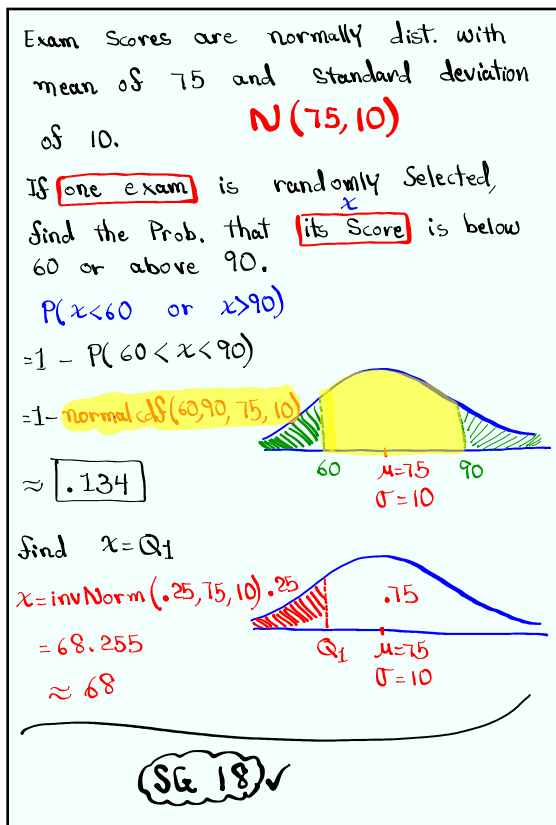 Exam Scores are normally dist. with
mean of 75 and Standard deviation
of 10. N(75,10)
If one exam is randomly Selected,
x
find the Prob. that its Score is below
60 or above 90.
P(x<60 or x>90)
=1 - P(60<x<90)
=1-normalcdf(60,90,75,10)
60 μ=75 90
σ=10
≈ .134
find x=Q1
x=invNorm(.25,75,10) .25 .75
=68.255
Q1 μ=75
≈ 68
σ=10
SG 18 ✓